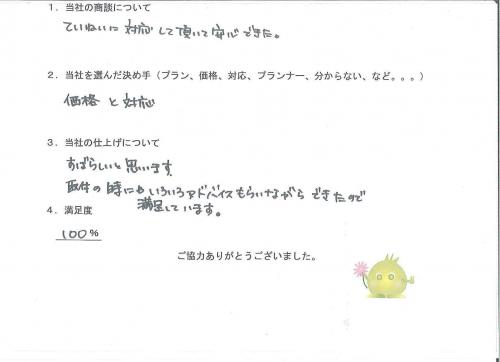 １．当社の商談について
ていねいに対応して頂いて安心できた。
２．当社を選んだ決め手（プラン、価格、対応、プランナー、分からない、など。。。）
価格と対応
３．当社の仕上げについて
すばらしいと思います。
取付の時にもいろいろアドバイスもらいながらできたので
満足しています。
４．満足度
100%
ご協力ありがとうございました。